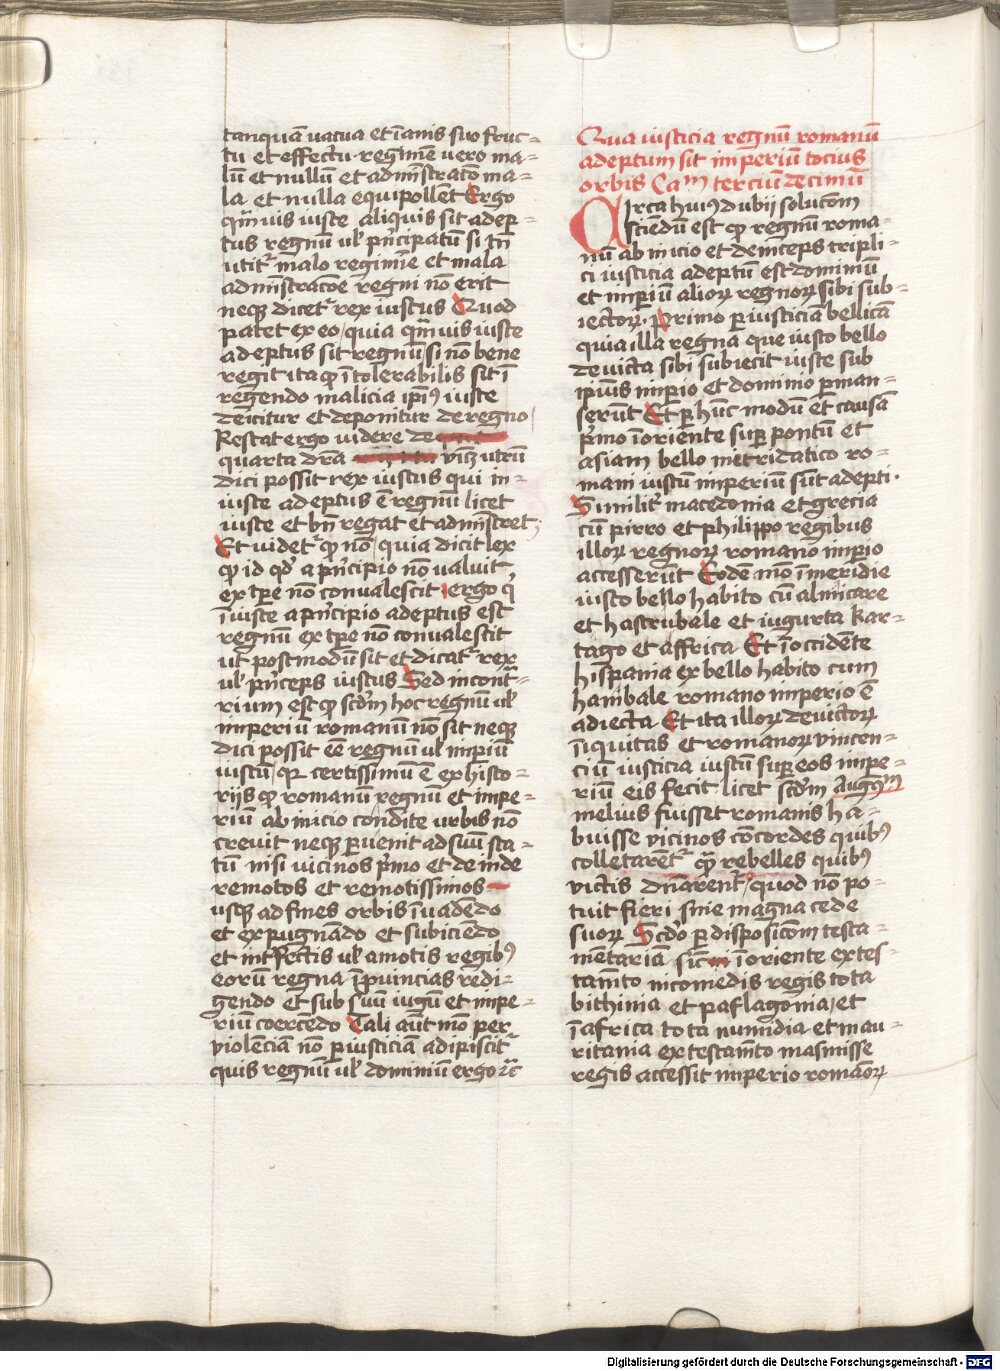 tanquā vacua et īanis suo fruc-
tu et effectu. regimē vero ma-
lū et nullū et admīstratō ma-
la et nulla equipollēt Ergo
qm̄vis iuste aliquis sit adep-
tus regnū vl' pn̄cipatū si tn̄
utit᷑ malo regimīe et mala
admīstracōe regni nō erit
neqꝫ dicet᷑ rex iustus Quod
patet ex eo quia qm̄vis iuste
adeptus sit regnū si nō bene
regit ita qꝫ ītolerabilis sit ī
regendo malicia ip̄iꝰ iuste
deicitur et deponitur de regno
Restat ergo videre de
quarta dr̄a viꝫ utrū
dici possit rex iustus qui in-
iuste adeptus ē regnū licet
iuste et bn̄ regat et admīstret;
Et videt᷑ ꝙ nō quia dicit lex
ꝙ id qd' a pn̄cipio nō valuit
ex tp̄e nō convalescit ergo qͥ
īiuste a pn̄cipio adeptus est
regnū ex tp̄e nō convalescit
ut postmodū sit et dicat᷑ rex
vl' pn̄ceps iustus Sed in cont᷑-
rium est ꝙ scd'm hoc regnū vl'
imperiū romanū nō sit neqꝫ
dici possit eē regnū vl' impiū
iustū qꝛ certissimū ē ex histo-
rijs ꝙ romanū regnū et impe-
riū ab inicio condite urbis nō
crevit neqꝫ pervenit ad suū sta-
tū nisi vicinos pͥmo et deinde
remotos et remotissimos
usqꝫ ad fines orbis īvadēdo
et expugnādo et subiciēdo
et int̄fectis vl' amotis regibꝰ
eorū regna ī ꝓvincias redi-
gendo et sub suū iugū et impe-
riū coercēdo Tali aūt mō per
violēciam nō ꝑ iusticiā adipiscit᷑
quis regnū vl' dominiū ergo ⁊c̄
Qua iusticia regnū romanū
adeptum sit imperiū tocius
orbis Cam terciūdecimū
Circa huiꝰ dubij solucōm
sciendū est ꝙ regnū roma-
nū ab inicio et deinceps tripli-
ci iusticia adeptū est dominiū
et impiū alioꝝ regnoꝝ sibi sub-
iectoꝝ. Primo ꝑ iusticiā bellicā
quia illa regna que iusto bello
devicta sibi subiecit iuste sub
ipius impio et dominio pman-
serūt Et ꝑ hūc modū et causā
pͥmo ī oriente suꝑ pontū et
asiam bello metridatico ro-
mani iustū imperiū sūt adepti.
Similit᷑ macedonia et grecia
cū pirro et philippo regibus
illoꝝ regnoꝝ romano impio
accesserūt Eodē mō ī meridie
iusto bello habito cū almicare
et hastrubale et iugurta kar-
tago et affrica Et ī occidēte
hispania ex bello habito cum
hanibale romano imperio ē
adiecta Et ita illoꝝ devictoꝝ
īiquitas et romanoꝝ vincen-
ciū iusticia iustū suꝑ eos impe-
riū eis fecit licet scd'm Augᵐ
melius fuisset romanis ha-
buisse vicinos cōcordes quibꝰ
colletarēt᷑ qᷓ rebelles quibꝰ
victis dn̄arent᷑ quod nō po-
tuit fieri sine magna cede
suoꝝ Scd'o ꝑ disposicōm testa-
mētariā sic̄ ī oriente ex tes-
tamēto nicomedis regis tota
bithinia et paflagonia et
ī africa tota numidia et mau-
ritania ex testamēto masinisse
regis accessit imperio romāoꝝ
Digitalisierung gefördert durch die Deutsche Forschungsgemeinschaft - DFG